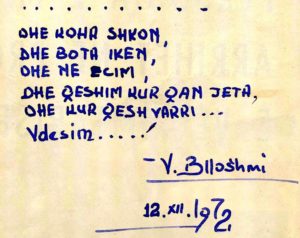 . . . . . . . . . .
DHE KOHA SHKON,
DHE BOTA IKEN,
DHE NE ECIM,
DHE QESHIM KUR QAN JETA,
DHE KUR QESH VARRI...
Vdesim.....!
- V. Blloshmi
12.XII.1972.